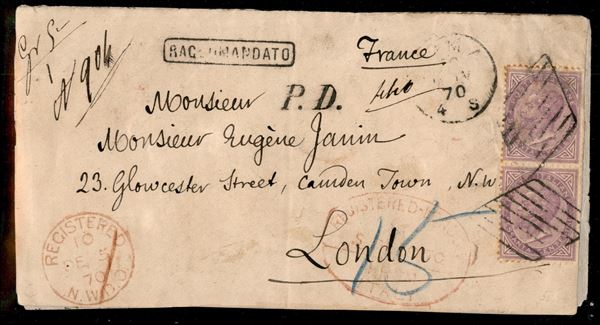 Gr 5
N 904
RACCOMANDATO
France
P.D.
70
4 S
Monsieur
Monsieur Eugène Janin
23. Glowcester Street, Camden Town, N.W.
London
15
REGISTERED
10
70
N.W.D.O
REGISTERED